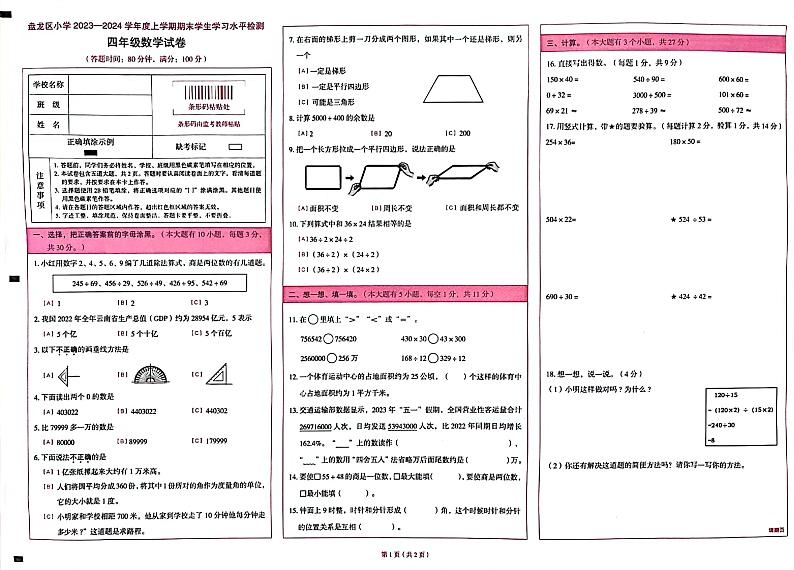 盘龙区小学2023—2024学年度上学期期末学生学习水平检测
四年级数学试卷
（答题时间：80分钟，满分：100分）
学校名称
班 级
姓 名
条形码粘贴处
条形码由监考教师粘贴
正确填涂示例
缺考标记
注意事项
1. 答题前，同学们务必将姓名、学校、班级用黑色碳素笔填写在相应的位置。
2. 本试卷包含五道大题，共2页。答题时要认真阅读卷面上的文字，看清每道题的要求，并按要求在本卡上作答。
3. 选择题使用2B铅笔填涂，将正确选项对应的“[ ]”涂满涂黑。其他题目使用黑色碳素笔作答。
4. 请在各题目的答题区域内作答，超出红色框区域的答案无效。
5. 字迹工整，填涂规范，保持卷面整洁。答题卡要平整，不要折叠。
一、选择，把正确答案前的字母涂黑。（本大题有10小题，每题3分，
共30分。）
1. 小红用数字2、4、5、6、9编了几道除法算式，商是两位数的有几道题。
245÷69、456÷29、526÷49、426÷95、542÷69
[A] 1 [B] 2 [C] 3
2. 我国2022年全年云南省生产总值（GDP）约为28954亿元，5表示
[A] 5个亿 [B] 5个十亿 [C] 5个百亿
3. 以下不正确的画垂线方法是
[A] [B] [C]
4. 下面读出两个0的数是
[A] 403022 [B] 4403022 [C] 440302
5. 比79999多一万的数是
[A] 80000 [B] 89999 [C] 179999
6. 下面说法不正确的是
[A] 1亿张纸摞起来大约有1万米高。
[B] 人们将圆平均分成360份，将其中1份所对的角作为度量角的单位，
它的大小就是1度。
[C] 小明家和学校相距700米，他从家到学校走了10分钟他每分钟走
多少米？”这道题是求路程。
7. 在右面的梯形上剪一刀分成两个图形，如果其中一个还是梯形，则另
一个
[A] 一定是梯形
[B] 一定是平行四边形
[C] 可能是三角形
8. 计算5000÷400的余数是
[A] 2 [B] 20 [C] 200
9. 把一个长方形拉成一个平行四边形，说法正确的是
[A] 面积不变 [B] 周长不变 [C] 面积和周长都不变
10. 下列算式中和36×24结果相等的是
[A] 36÷2×24÷2
[B]（36÷2）×（24÷2）
[C]（36÷2）×（24×2）
二、想一想、填一填。（本大题有5小题，每空1分，共11分）
11. 在○里填上“＞”“＜”或“＝”。
756542○756420 430×30○43×300
2560000○256万 168÷12○329÷12
12. 一个体育运动中心的占地面积约为25公顷，（ ）个这样的体育中
心占地面积约为1平方千米。
13. 交通运输部数据显示，2023年“五一”假期，全国营业性客运量合计
269716000人次，日均发送53943000人次，比2022年同期日均增长
162.4%。“ ”上的数读作（ ），
“ ”上的数用“四舍五入”法省略万后面尾数约是（ ）万。
14. 要使□55÷48的商是一位数，□最大能填（ ），要使商是两位数，
□最小能填（ ）。
15. 钟面上9时整，时针和分针形成（ ）角，这个时候时针和分针
的位置关系是互相（ ）。
三、计算。（本大题有3个小题，共27分）
16. 直接写出得数。（每题1分，共9分）
150×40= 540÷90= 600×60=
0÷32= 3000÷500= 101×60=
69×21≈ 278÷39≈ 500÷72≈
17. 用竖式计算，带★的题要验算。（每题计算2分，验算1分，共14分）
254×36= 180×50=
504×22= ★524÷53=
690÷30= ★424÷42=
18. 想一想，说一说。（4分）
（1）小明这样做对吗？为什么？
120÷15
=（120×2）÷（15×2）
=240÷30
=8
（2）你还有解决这道题的简便方法吗？请你写一写你的方法。
第1页（共2页）